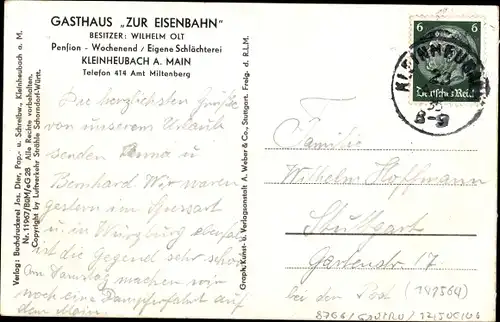 GASTHAUS „ZUR EISENBAHN"
BESITZER: WILHELM OLT
Pension - Wochenend / Eigene Schlächterei
KLEINHEUBACH A. MAIN
Telefon 414 Amt Miltenberg
Die herzlichsten Grüße
von unserem Urlaub
senden Anna u
Bernhard Wir waren
gestern im Spessart
u. in Würzburg
ist die Gegend sehr schön
Am Samstag machen wir
noch eine Dampferfahrt auf
dem Main.
Verlag: Buchdruckerei Jos. Dier, Pap.- u. Schreibw., Kleinheubach a. M.
Nr. 11967/BGM/eG 28 Alle Rechte vorbehalten.
Copyright by Luftverkehr Strähle Schorndorf-Württ.
Graph. Kunst- u. Verlagsanstalt A. Weber & Co., Stuttgart. Freig. d. R.L.M.
6 6
Deutsches Reich
KLEINHEUBACH
8-9
Familie
Wilhelm Hoffmann
Stuttgart
Gartenstr 17
bei der Post